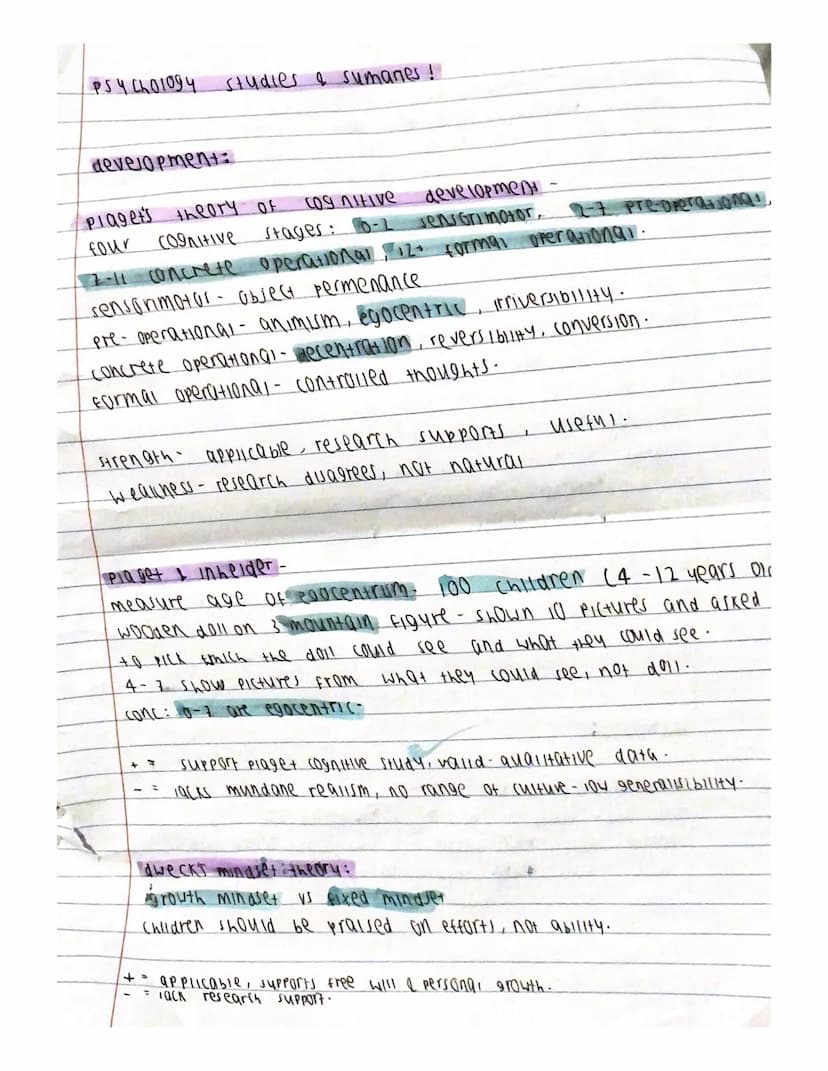 psychology studies & sumaries!
development:
piaget's theory of cognitive development -
four cognitive stages: 0-2 sensorimotor, 2-7 pre-operational,
7-11 concrete operational, 12+ formal operational.
sensorimotor - object permenance
pre-operational - animism, egocentric, irriversibility.
concrete operational - decentration, reversibility, conversion.
formal operational - controlled thoughts.
strength - applicable, research supports, useful.
weakness - research disagrees, not natural
piaget & inhelder -
measure age of egocentrism. 100 children (4-12 years old
wooden doll on 3 mountain figure - shown 10 pictures and asked
to pick which the doll could see and what they could see.
4-7 show pictures from what they could see, not doll.
conc: 0-7 are egocentric.
+ = support piaget cognitive study, valid - qualitative data.
- = lacks mundane realism, no range of culture - low generalisibility.
dweck's mindset theory:
growth mindset vs fixed mindset
children should be praised on efforts, not ability.
+ = applicable, supports free will & personal growth.
- = lack research support.